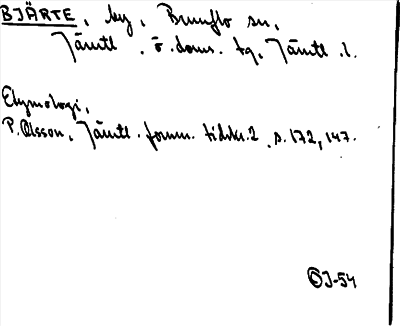 BJÄRTE, by, Brunflo sn,
Jämtl. ö. doms. tg, Jämtl. l.
Etymologi,
P. Olsson, Jämtl. fornm. tidskr. 2, s. 172, 147.
J-54